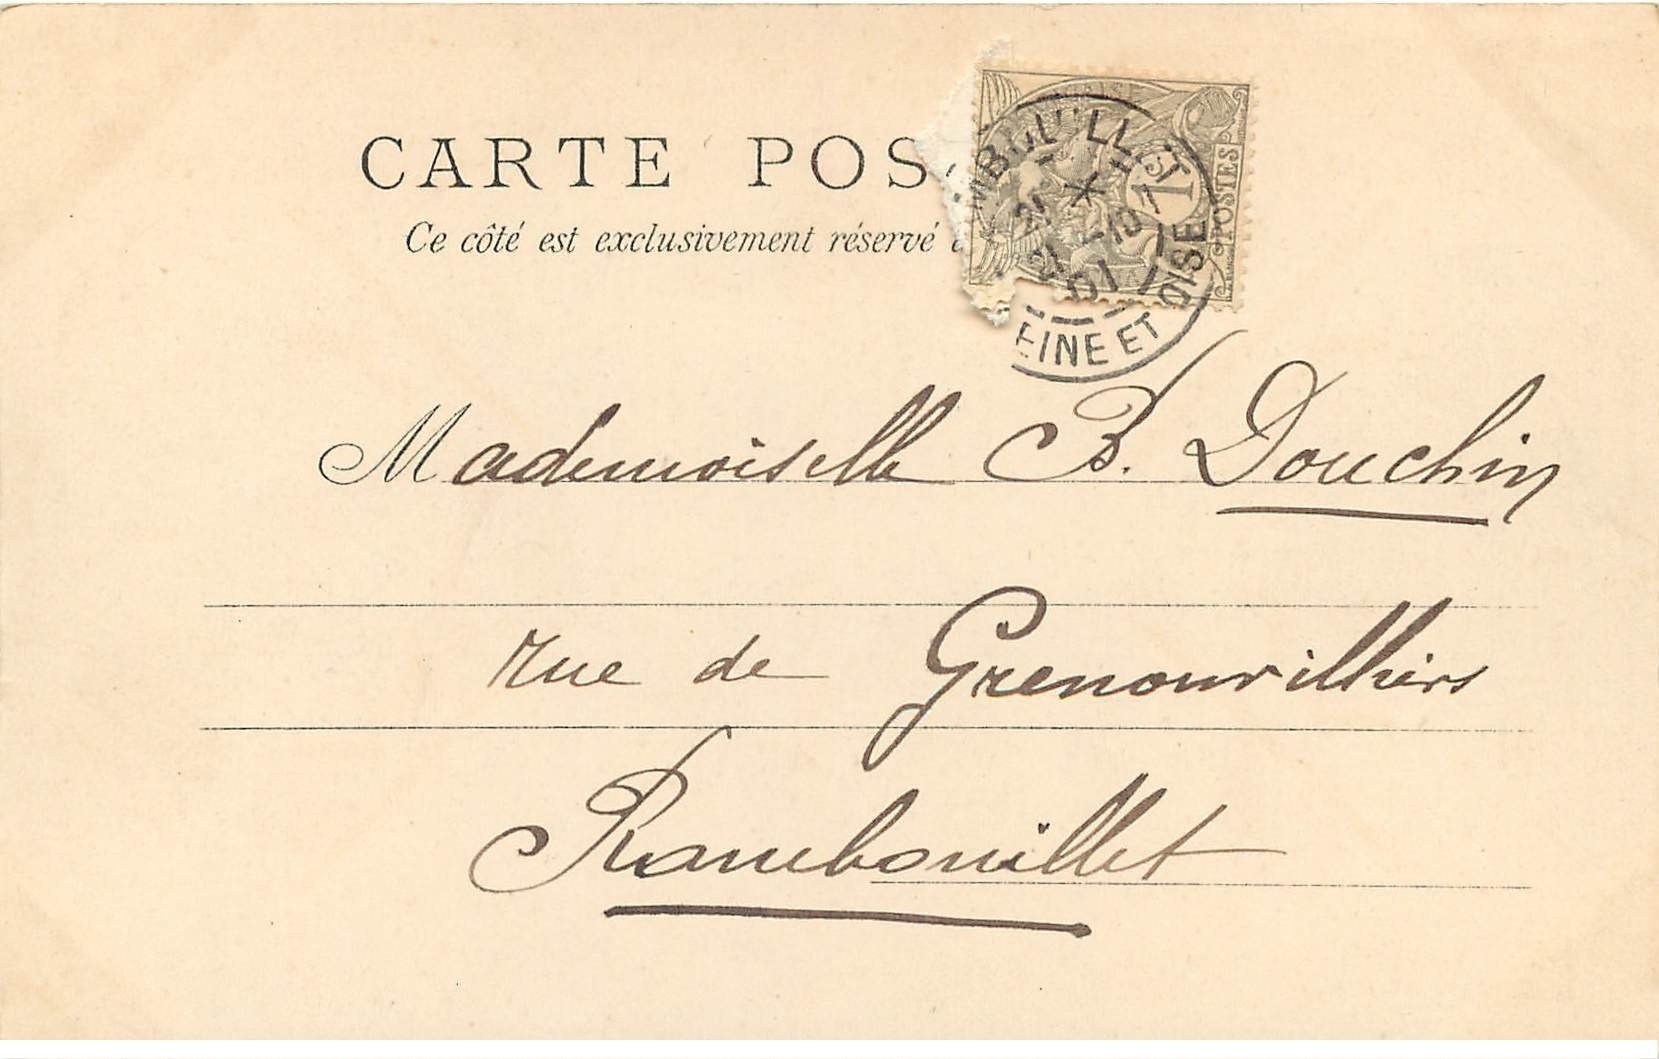 CARTE POS
Ce côté est exclusivement réservé
MBOUILLET
SEINE ET OISE
1
POSTES
Mademoiselle B. Douchin
rue de Grenouvilliers
Rambouillet